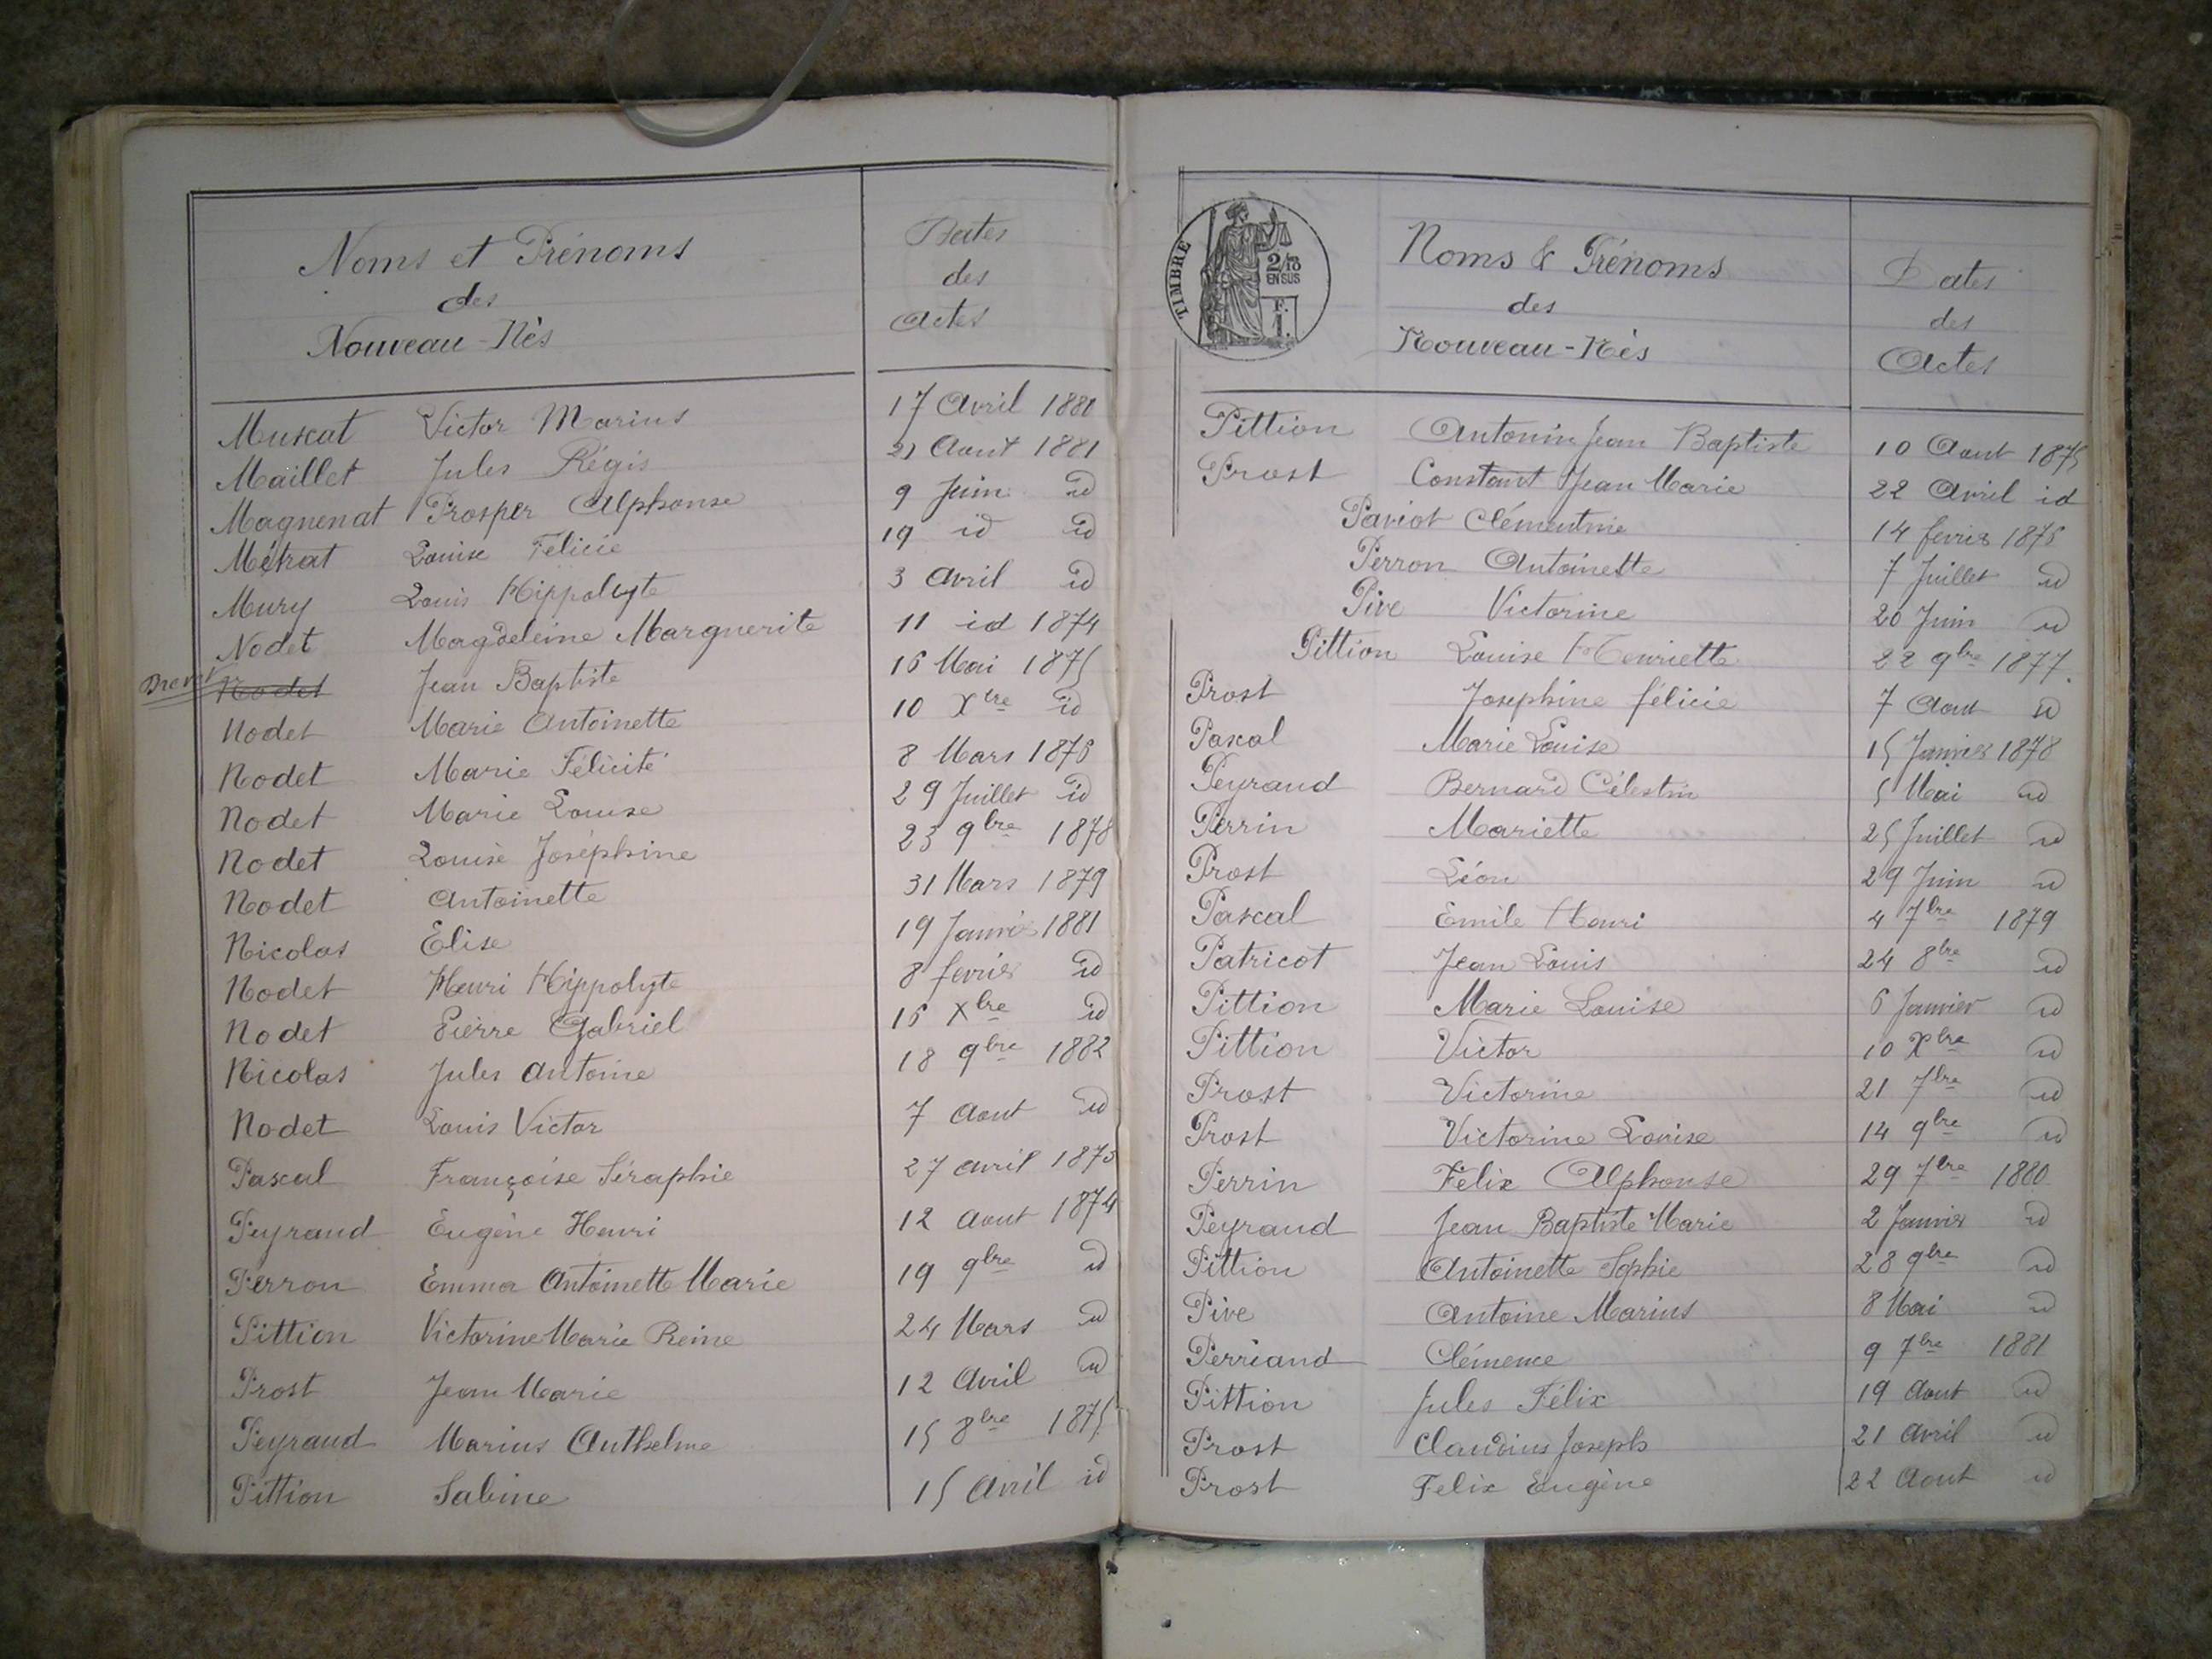 Noms et Prénoms
des
Nouveau-Nés
Dates
des
Actes
Muscat Victor Marius 17 Avril 1880
Maillet Jules Régis 21 Aout 1881
Magnenat Prosper Alphonse 9 Juin id
Métrat Louise Félicie 19 id id
Mury Louis Hippolyte 3 Avril id
Nodet Magdeleine Marguerite 11 id 1874
Drevet Nodet Jean Baptiste 16 Mai 1875
Nodet Marie Antoinette 10 Xbre id
Nodet Marie Félicité 8 Mars 1876
Nodet Marie Louise 29 Juillet id
Nodet Louise Joséphine 23 9bre 1878
Nodet Antoinette 31 Mars 1879
Nicolas Elise 19 Janvier 1881
Nodet Henri Hippolyte 8 fevrier id
Nodet Pierre Gabriel 16 Xbre id
Nicolas Jules Antoine 18 9bre 1882
Nodet Louis Victor 7 Aout id
Pascal Françoise Séraphie 27 avril 1873
Peyraud Eugène Henri 12 Aout 1874
Perron Emma Antoinette Marie 19 9bre id
Pittion Victorine Marie Reine 24 Mars id
Prost Jean Marie 12 Avril id
Peyraud Marius Anthelme 15 8bre 1875
Pittion Sabine 15 Avril id
TIMBRE
2/10
EN SUS
F.
1.
Noms & Prénoms
des
Nouveau-Nés
Dates
des
Actes
Pittion Antonin Jean Baptiste 10 Aout 1875
Prost Constant Jean Marie 22 Avril id
Paviot Clémentine 14 fevrier 1876
Perron Antoinette 7 Juillet id
Pive Victorine 20 Juin id
Pittion Louise Henriette 22 9bre 1877.
Prost Josephine félicie 7 Aout id
Pascal Marie Louise 15 Janvier 1878
Peyraud Bernard Célestin 5 Mai id
Perrin Mariette 25 Juillet id
Prost Léon 29 Juin id
Pascal Emile Henri 4 7bre 1879
Patricot Jean Louis 24 8bre id
Pittion Marie Louise 6 Janvier id
Pittion Victor 10 Xbre id
Prost Victorine 21 7bre id
Prost Victorine Louise 14 9bre id
Perrin Félix Alphonse 29 7bre 1880
Peyraud Jean Baptiste Marie 2 Janvier id
Pittion Antoinette Sophie 28 9bre id
Pive Antoine Marius 8 Mai id
Perriand Clémence 9 7bre 1881
Pittion Jules Félix 19 Aout id
Prost Claudius Joseph 21 Avril id
Prost Felix Eugène 22 Aout id